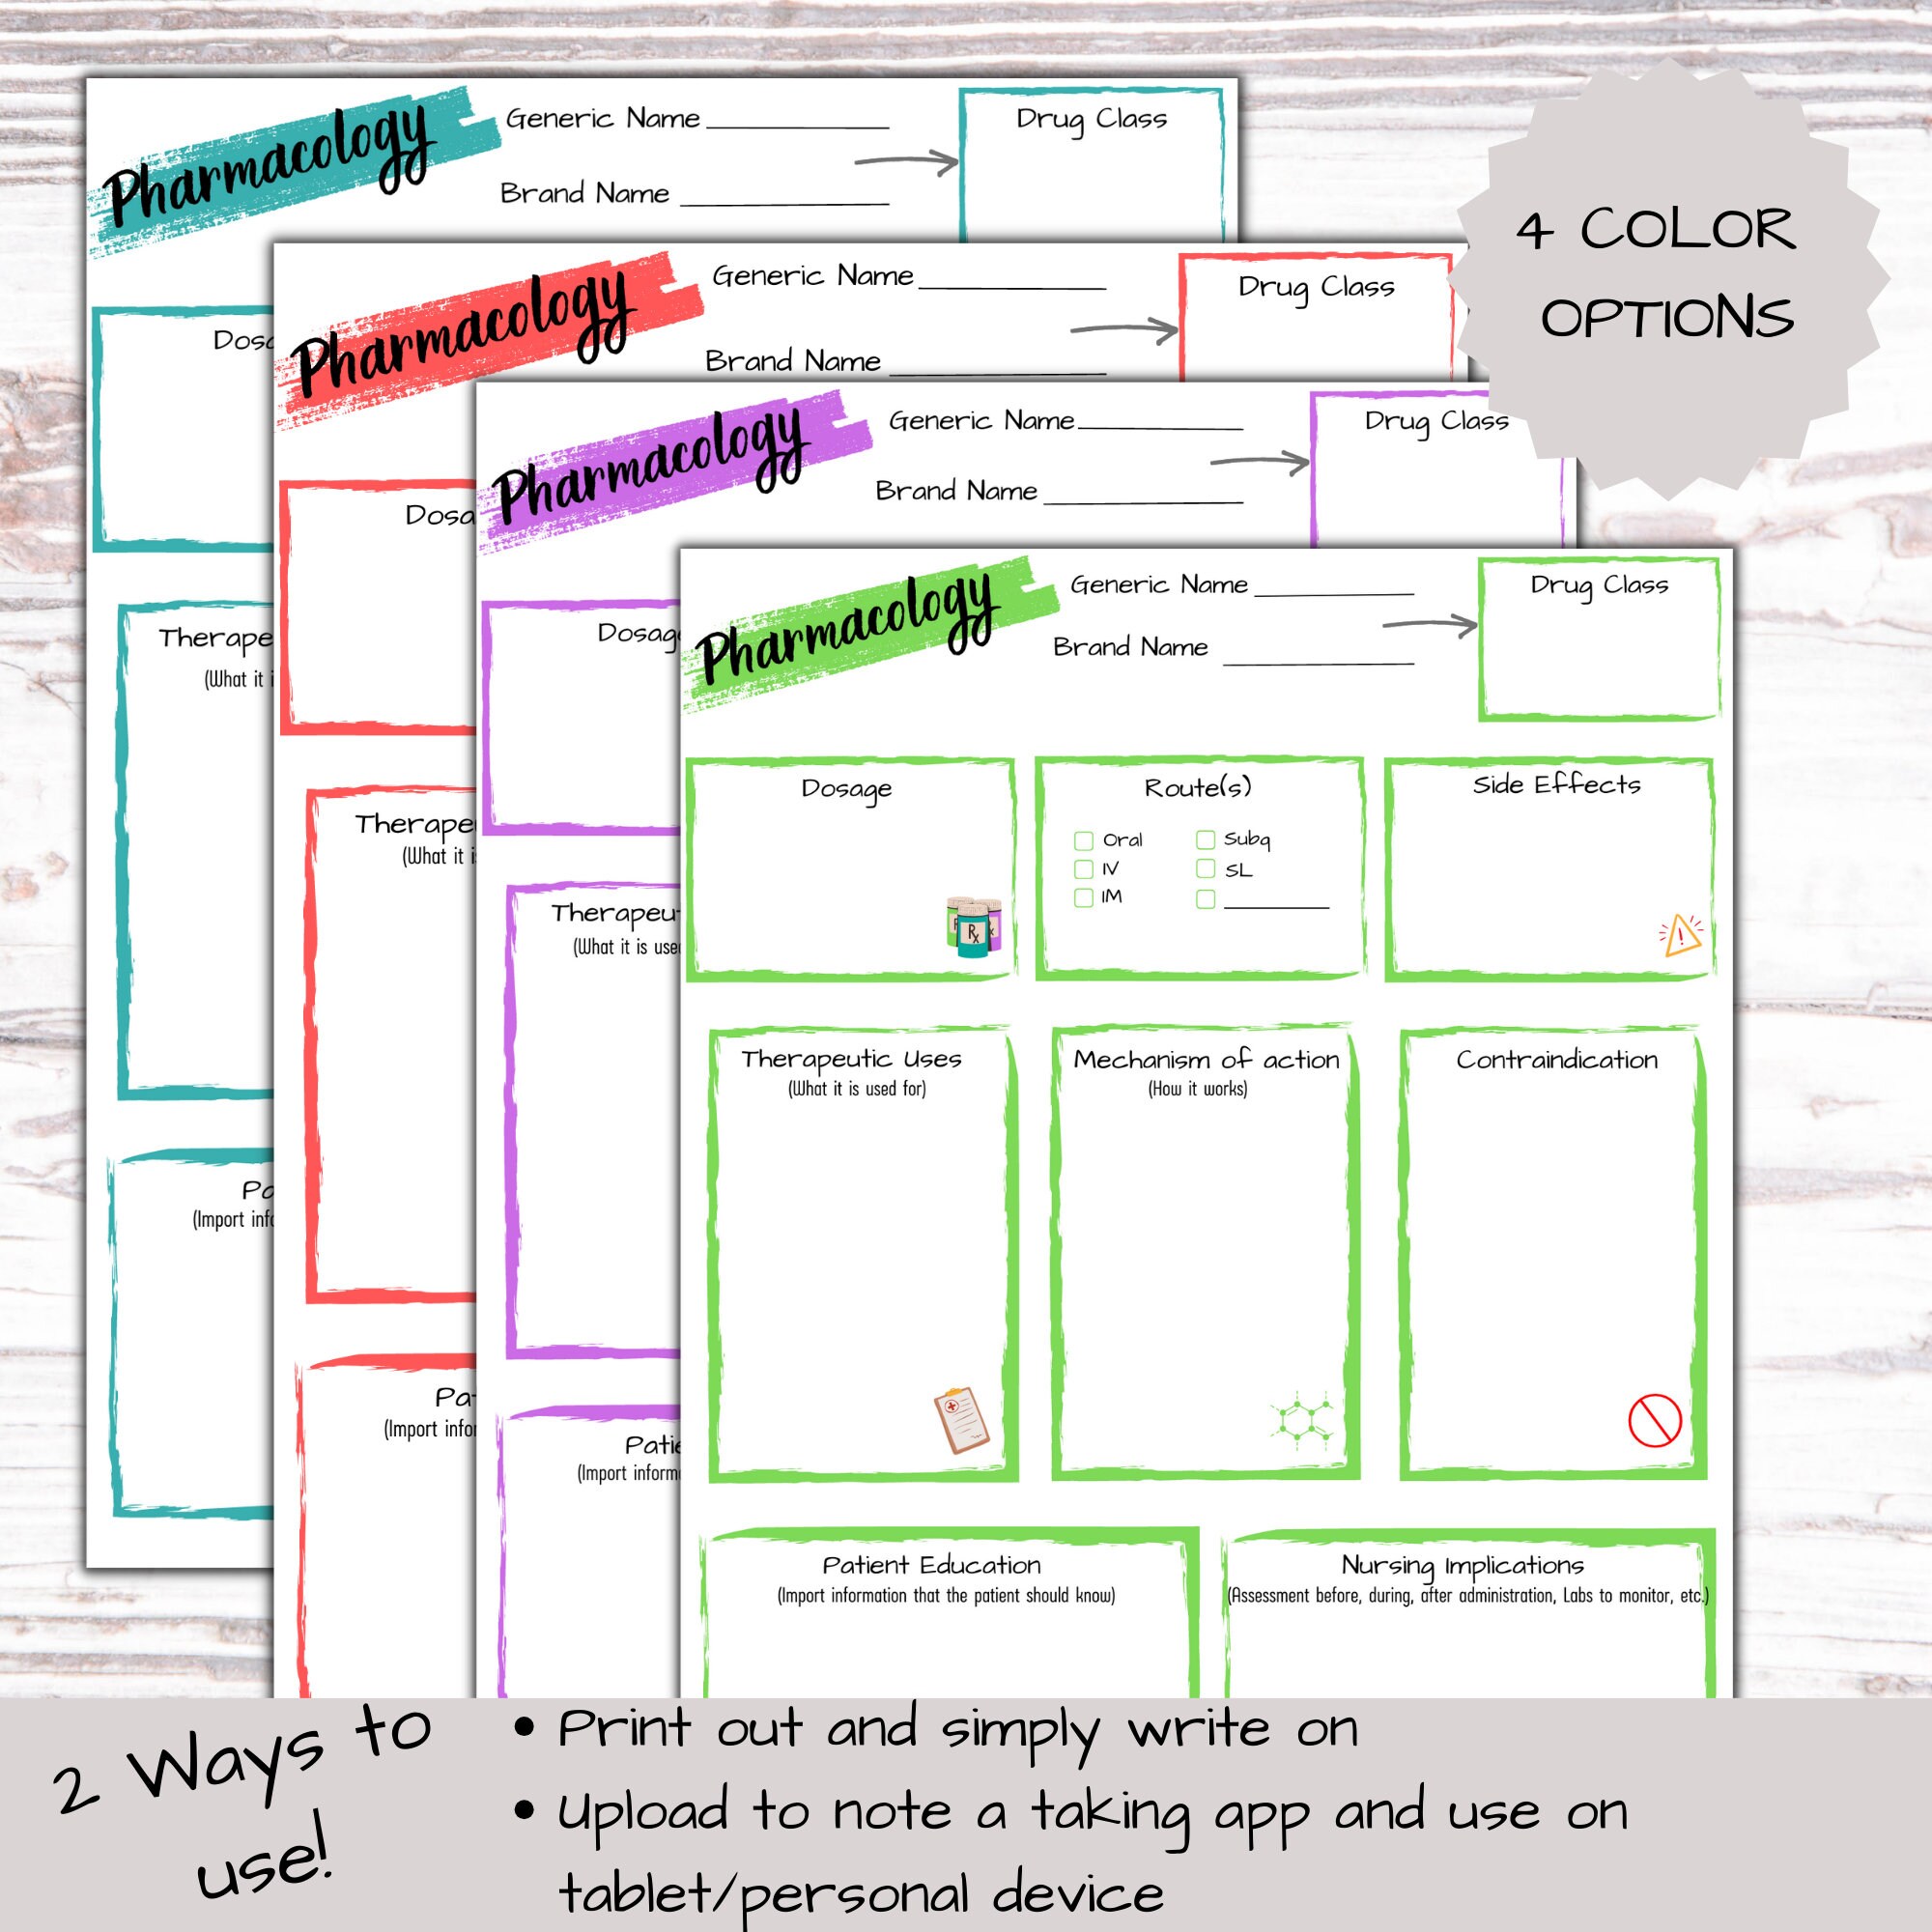 Pharmacology
Generic Name
Brand Name
Drug Class
Pharmacology
Generic Name
Brand Name
Drug Class
Pharmacology
Generic Name
Brand Name
Drug Class
4 COLOR
OPTIONS
Pharmacology
Generic Name
Brand Name
Drug Class
Dosage
Route(s)
Oral
Subq
IV
SL
IM
Rx
Side Effects
Therapeutic Uses
(What it is used for)
Mechanism of action
(How it works)
Contraindication
Patient Education
(Import information that the patient should know)
Nursing Implications
(Assessment before, during, after administration, Labs to monitor, etc.)
2 Ways to
use!
• Print out and simply write on
• Upload to note a taking app and use on
tablet/personal device